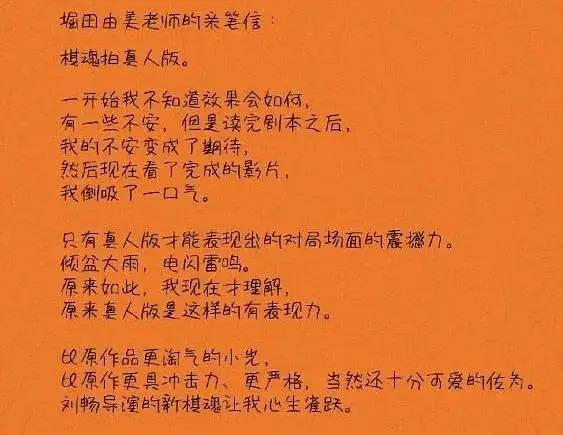 堀田由美老师的亲笔信：
棋魂拍真人版。
一开始我不知道效果会如何，
有一些不安，但是读完剧本之后，
我的不安变成了期待，
然后现在看了完成的影片，
我倒吸了一口气。
只有真人版才能表现出的对局场面的震撼力。
倾盆大雨，电闪雷鸣。
原来如此，我现在才理解，
原来真人版是这样的有表现力。
比原作品更淘气的小光，
比原作更具冲击力、更严格，当然还十分可爱的佐为。
刘畅导演的新棋魂让我心生雀跃。